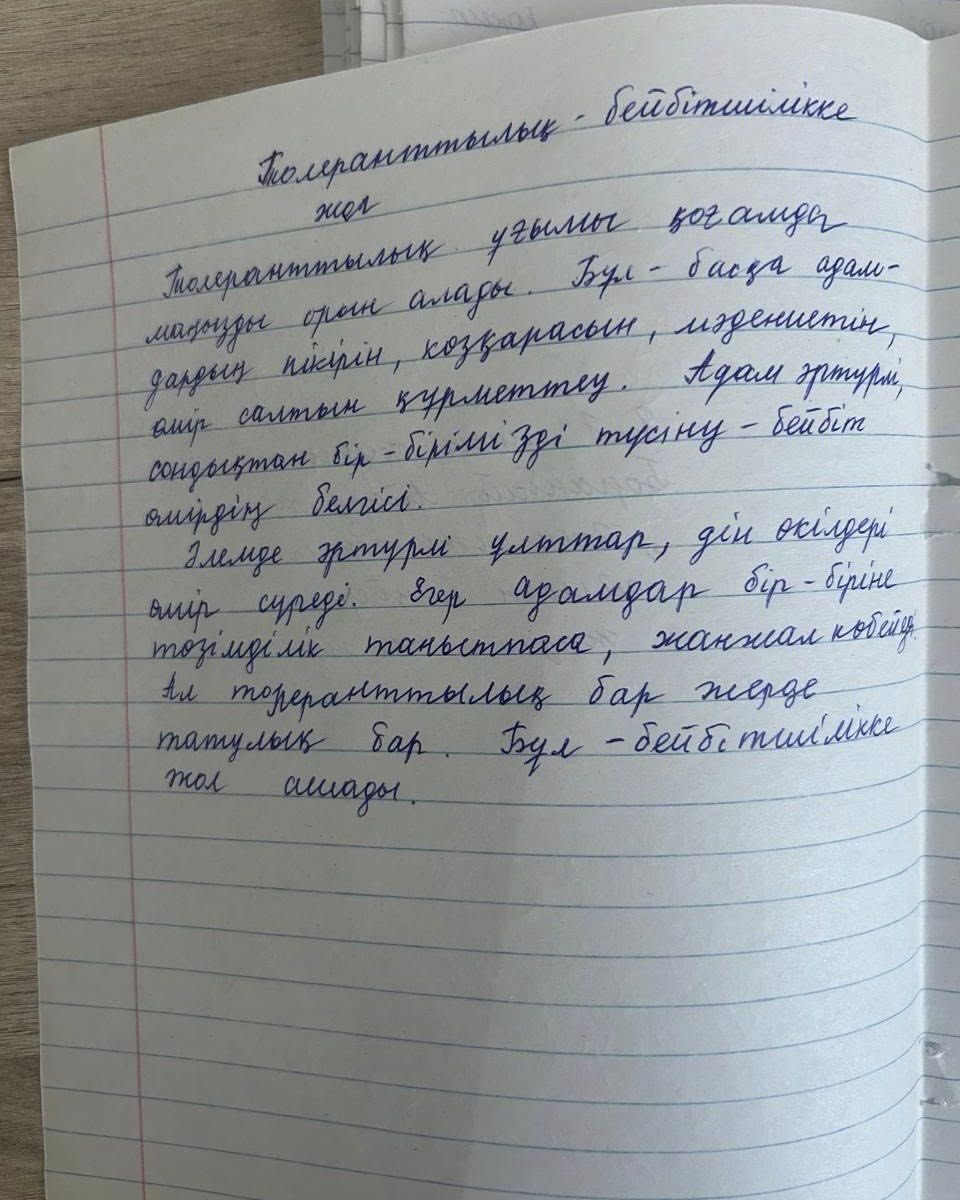 Толеранттылық - бейбітшілікке
жол
Толеранттылық ұғымы қоғамда
маңызды орын алады. Бұл - басқа адам-
дардың пікірін, көзқарасын, мәдениетін,
өмір салтын құрметтеу. Адам әртүрлі,
сондықтан бір-бірімізді түсіну - бейбіт
өмірдің белгісі.
Әлемде әртүрлі ұлттар, дін өкілдері
өмір сүреді. Егер адамдар бір-біріне
төзімділік танытпаса, жанжал көбейеді.
Ал толеранттылық бар жерде
татулық бар. Бұл - бейбітшілікке
жол ашады.